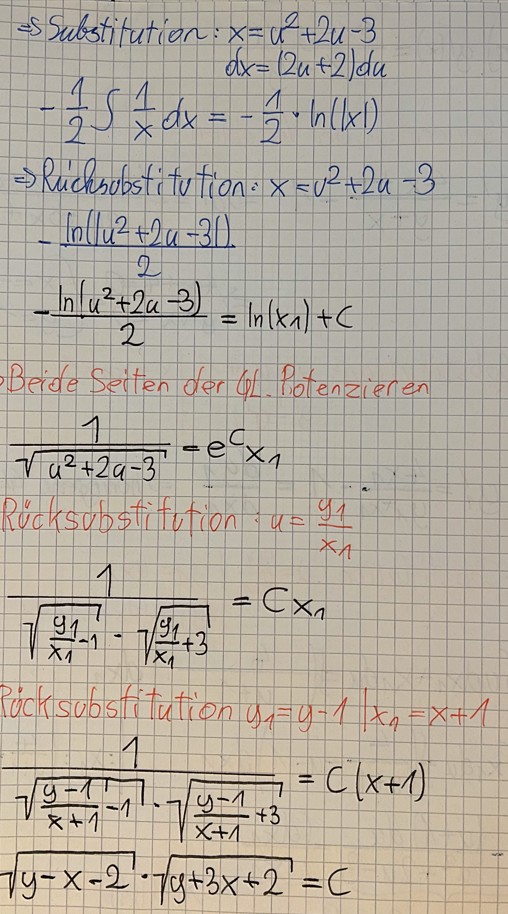 ⇒ Substitution: x = u² + 2u - 3
dx = (2u + 2) du
- 1/2 ∫ 1/x dx = - 1/2 · ln(|x|)
⇒ Rücksubstitution: x = u² + 2u - 3
- ln(|u² + 2u - 3|)/2
- ln(u² + 2u - 3)/2 = ln(x₁) + C
Beide Seiten der GL. Potenzieren
1/√(u² + 2u - 3) = e^C x₁
Rücksubstitution: u = y₁/x₁
1/(√(y₁/x₁ - 1) · √(y₁/x₁ + 3)) = C x₁
Rücksubstitution y₁ = y - 1 | x₁ = x + 1
1/(√((y - 1)/(x + 1) - 1) · √((y - 1)/(x + 1) + 3)) = C (x + 1)
√(y - x - 2) · √(y + 3x + 2) = C